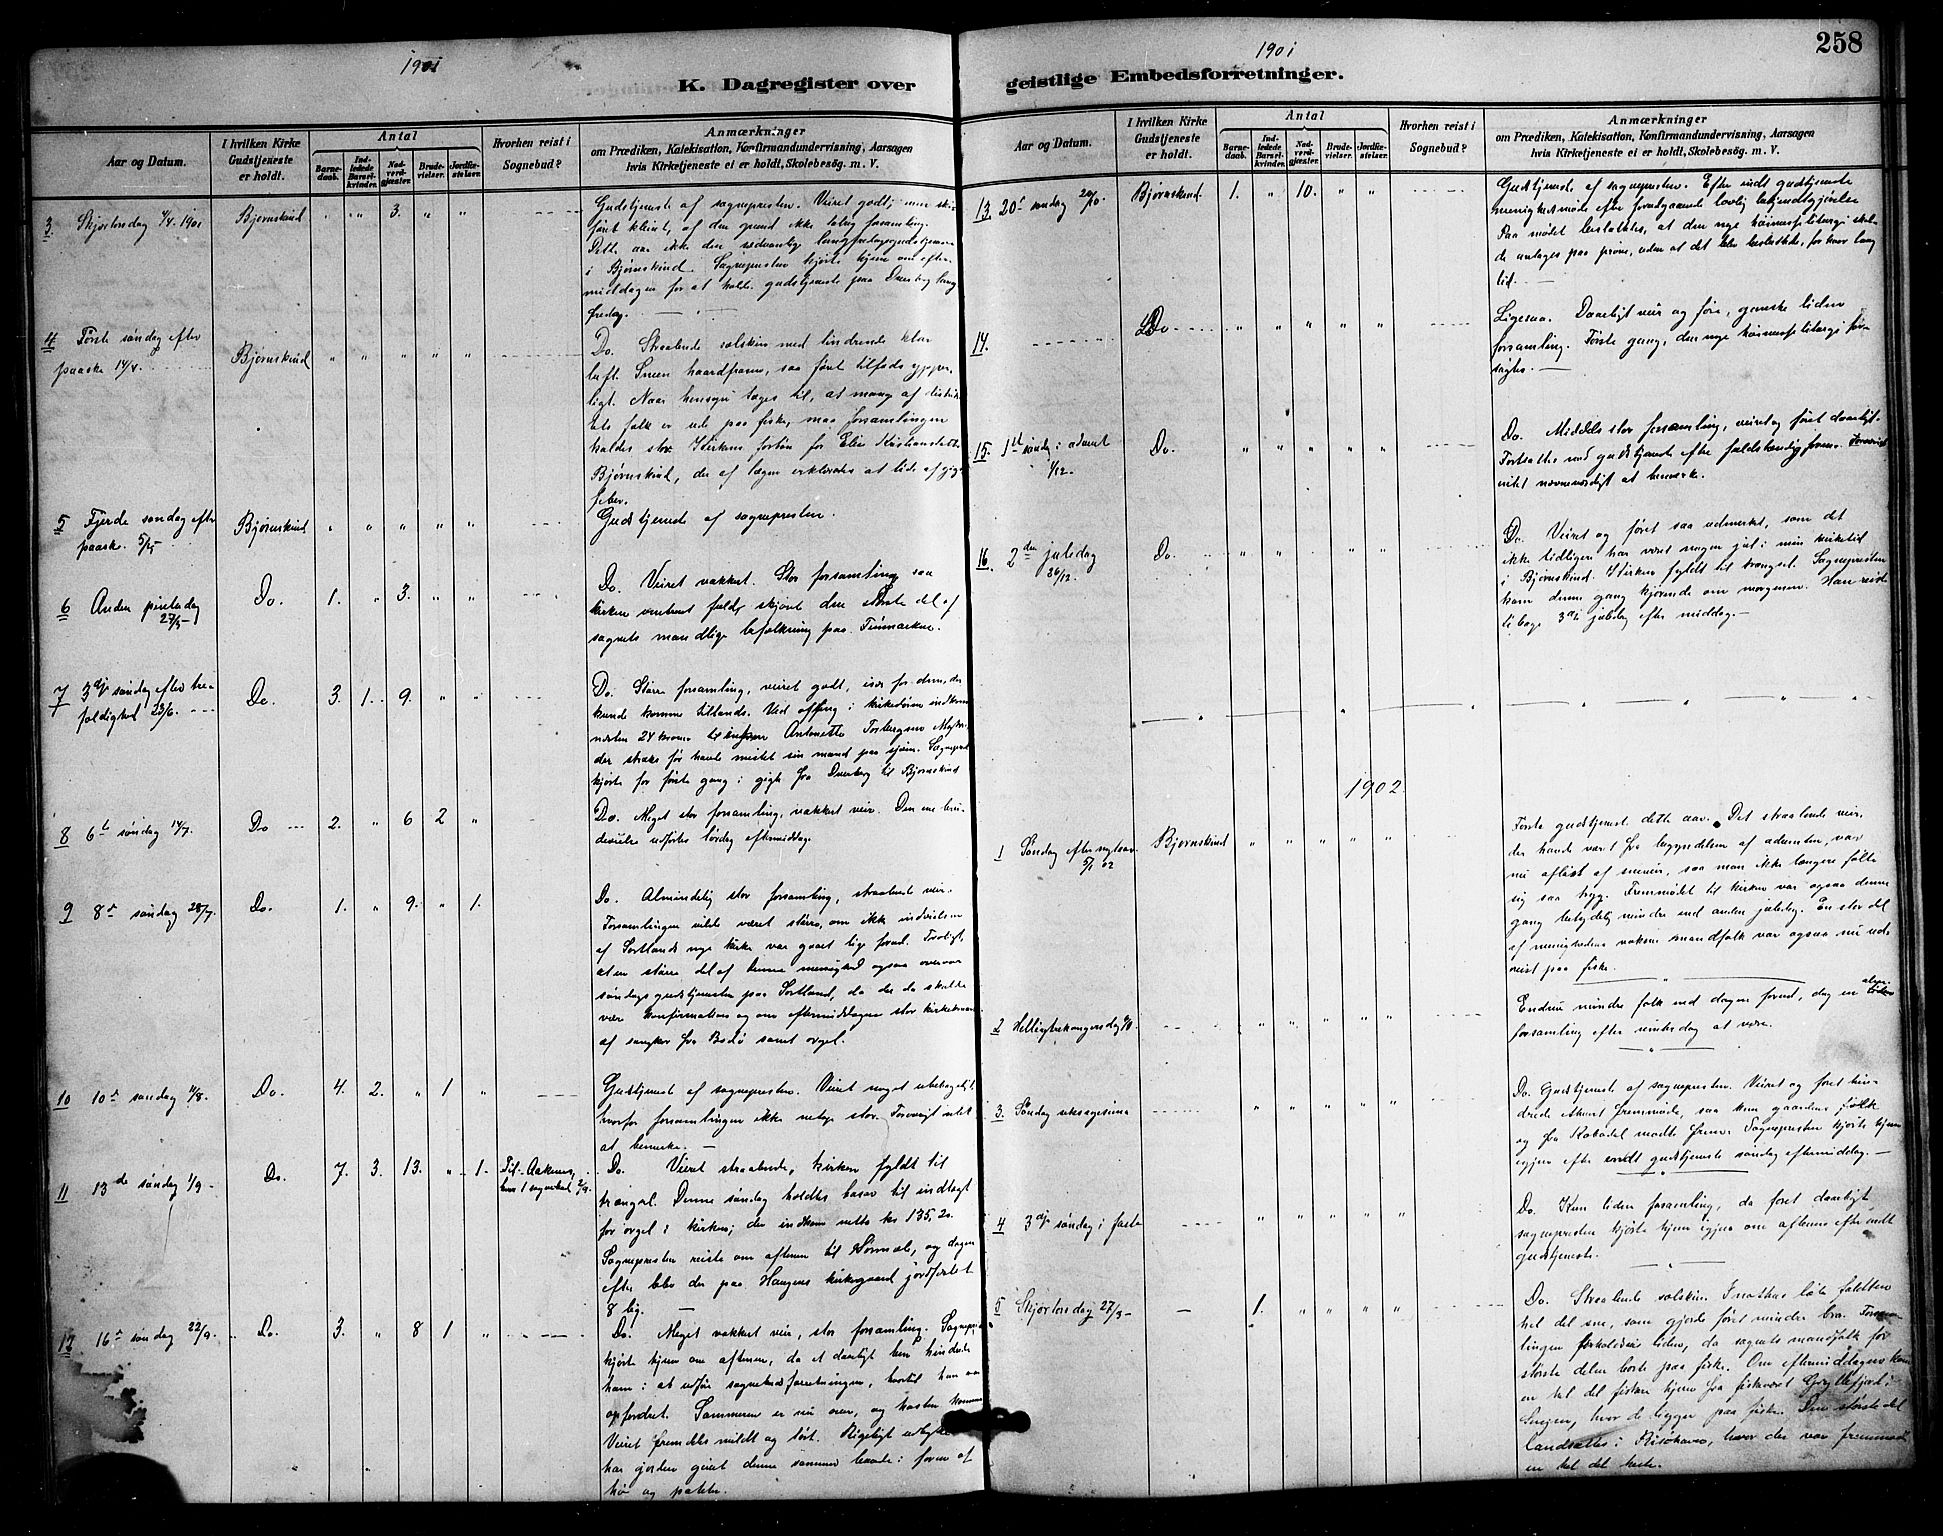 1901
K. Dagregister over
Aar og Datum.
I hvilken Kirke
Gudstjeneste
er holdt.
Antal
Barne-
daab.
Ind-
ledede
Barsel-
kvinder.
Nad-
verd-
gjæster.
Brude-
vielser.
Jordfæ-
stelser.
Hvorhen reist i
Sognebud?
Anmærkninger
om Prædiken, Katekisation, Konfirmandundervisning, Aarsagen
hvis Kirketjeneste ei er holdt, Skolebesøg. m. V.
3. Skjærtorsdag 4/4 1901 Bjørnskind " " 3. " "
Gudstjeneste af sognepresten. Veiret godt, men ski-
føret kleint, af den grund ikke talrig forsamling.
Dette aar ikke den sedvanlig langfredagsgudstjeneste
i Bjørnskind. Sognepresten kjørte hjem om efter-
middagen for at holde gudstjeneste paa Dverberg lang
fredag.
4 Første søndag efter
paaske 14/4. Bjørnskind " " " " "
Do. Straalende solskin med lindrende klar
luft. Sneen haardfrosen, saa føret tilfods ypper-
ligt. Naar hensyn tages til, at mange af distrik-
tets folk er ude paa fiske, maa forsamlingen
kaldes stor. Kirkens forbøn for Elie Kristiansdatter
Bjørnskind, der af lægen erklæredes at lide af gigt-
feber.
5 Fjerde søndag efter
paaske. 5/5 Bjørnskind " " " " "
Gudstjeneste af sognepresten.
6 Anden pinsedag
27/5 Do. 1. " 3. " "
Do. Veiret vakkert. Stor forsamling, saa
kirken omtrent fuld, skjønt den største del af
sognets mandlige befolkning paa Finmarken.
7 3die søndag efter tre-
foldighed 23/6. Do. 3. 1. 9. " "
Do. Større forsamling, veiret godt, især for dem, der
kunde komme tillands. Ved offring i kirkedøren indkom
næsten 24 kroner til enken Antonette Torbergsen
der straks før havde mistet sin mand paa sjøen. Sognepresten
kjørte for første gang i gigh fra Dverberg til Bjørnskind
8 6te søndag 14/7. Do 2. " 6 2 "
Do. Meget stor forsamling, vakkert veir. Den ene bru-
devielse udførtes lørdag eftermiddag.
9 8de søndag 28/7. Do. 1. " 9. " 1.
Do. Almindelig stor forsamling, straalende veir.
Forsamlingen vilde været større, om ikke indvielsen
af Sortlands nye kirke var gaaet lige forud. Troligt,
at en større del af denne menighed ogsaa overvar
søndagsgudstjenesten paa Sortland, da der da skulde
være konfirmation og om eftermiddagen stor kirkekoncert
af sangkor fra Bodø samt orgel.
10 10de søndag 11/8. Do. 4. 2. " 1 "
Gudstjeneste af sognepresten. Veiret noget ubehageligt,
hvorfor forsamlingen ikke netop stor. Forøvrigt intet
at bemerke.
11 13de søndag 1/9. Do. 7. 3. 13. " 1. Til Aakenes,
hvor 1 sognebud 2/9.
Do. Veiret straalende, kirken fyldt til
trængsel. Denne søndag holdtes basar til indtægt
for orgel i kirken; der indkom netto kr 135,20.
Sognepresten reiste om aftenen til og dagen
efter blev der paa Haugens kirkegaard jordfæstet
8 lig.
12 16de søndag 22/9. Do. 3. " 8 1 "
Do. Meget vakkert veir, stor forsamling. Sognepr.
kjørte hjem om aftenen, da et daarligt ben hindrede
ham i at udføre sognebudsforretningen, hvortil han var
opfordret. Sommeren er nu over, og høsten kommen.
Veiret fremdeles mildt og tørt. Rigeligt udbytte
har jorden givet denne sommer baade i form af
hø og poteter.
1901
258
geistlige Embedsforretninger.
Aar og Datum.
I hvilken Kirke
Gudstjeneste
er holdt.
Antal
Barne-
daab.
Ind-
ledede
Barsel-
kvinder.
Nad-
verd-
gjæster.
Brude-
vielser.
Jordfæ-
stelser.
Hvorhen reist i
Sognebud?
Anmærkninger
om Prædiken, Katekisation, Konfirmandundervisning, Aarsagen
hvis Kirketjeneste ei er holdt, Skolebesøg. m. V.
13. 20de søndag 20/10. Bjørnskind. 1. " 10. " "
Gudstjeneste af sognepresten. Efter endt gudstjeneste
menighedsmøde efter forudgaaende lovlig bekjendtgjørelse.
Paa mødet besluttedes, at den nye høimesseliturgi skul-
de antages paa prøve, uden at det blev besluttet, for hvor lang
tid.
14. Do " " " " "
Ligesaa. Daarligt veir og føre, ganske liden
forsamling. Første gang, den nye høimesseliturgi for-
søgtes.
15. 1ste søndag i advent
1/12. Do. " " " " "
Do. Middels stor forsamling, veiret og føret daarligt.
Fortsattes med gudstjeneste efter fuldstændig form. Forøvrigt
intet nævneværdigt at bemærke.
16. 2den juledag
26/12. Do. " " " " "
Do. Veiret og føret saa udmerket, som det
ikke tidligere har været nogen jul i min kirketid
i Bjørnskind. Kirken fyldt til trængsel. Sognepresten
kom denne gang kjørende om morgenen. Han reiste
tilbage 3die juledag efter middag.
1902.
1 Søndag efter nytaar
5/1 02 Bjørnskind " " " " "
Første gudstjeneste dette aar. Det straalende veir,
der havde været fra begyndelsen af adventen, var
nu afløst af sneveir, saa man ikke længere følte
sig saa tryg. Fremmødet til kirken var ogsaa denne
gang betydelig mindre end anden juledag. En stor del
af menighedens voksne mandfolk var ogsaa nu ud-
reist paa fiske.
2 Helligtrekongersdag 6/1. " " " " "
Endnu mindre folk end dagen forud, dog en
forsamling efter vinterdag at være.
3. Søndag seksagesima " " " " "
Do. Gudstjeneste af sognepresten. Veiret og føret hin-
drede ethvert fremmøde, saa kun gaardens folk
og fra Robadal mødte frem. Sognepresten kjørte hjem
igjen efter endt gudstjeneste søndag eftermiddag.
4 3die søndag i faste " " " " "
Do. Kun liden forsamling, da føret daarligt,
sognepresten kjørte hjem igjen om aftenen efter endt
gudstjeneste.
5 Skjærtorsdag 27/3 1. " " " "
Do. Straalende solskin. Inattens løb faldt en
hel del sne, som gjorde føret mindre bra. Forsam-
lingen forholdsvis liden, da sognets mandfolk for
største delen borte paa fiske. Om eftermiddagen kom
en hel del fiskere hjem fra fiskeværet Gryllefjord i
Senjen, hvor de ligger paa fiske. Den største del
landsattes i Risøhavn, hvor der var fremmødt
en hel del heste.